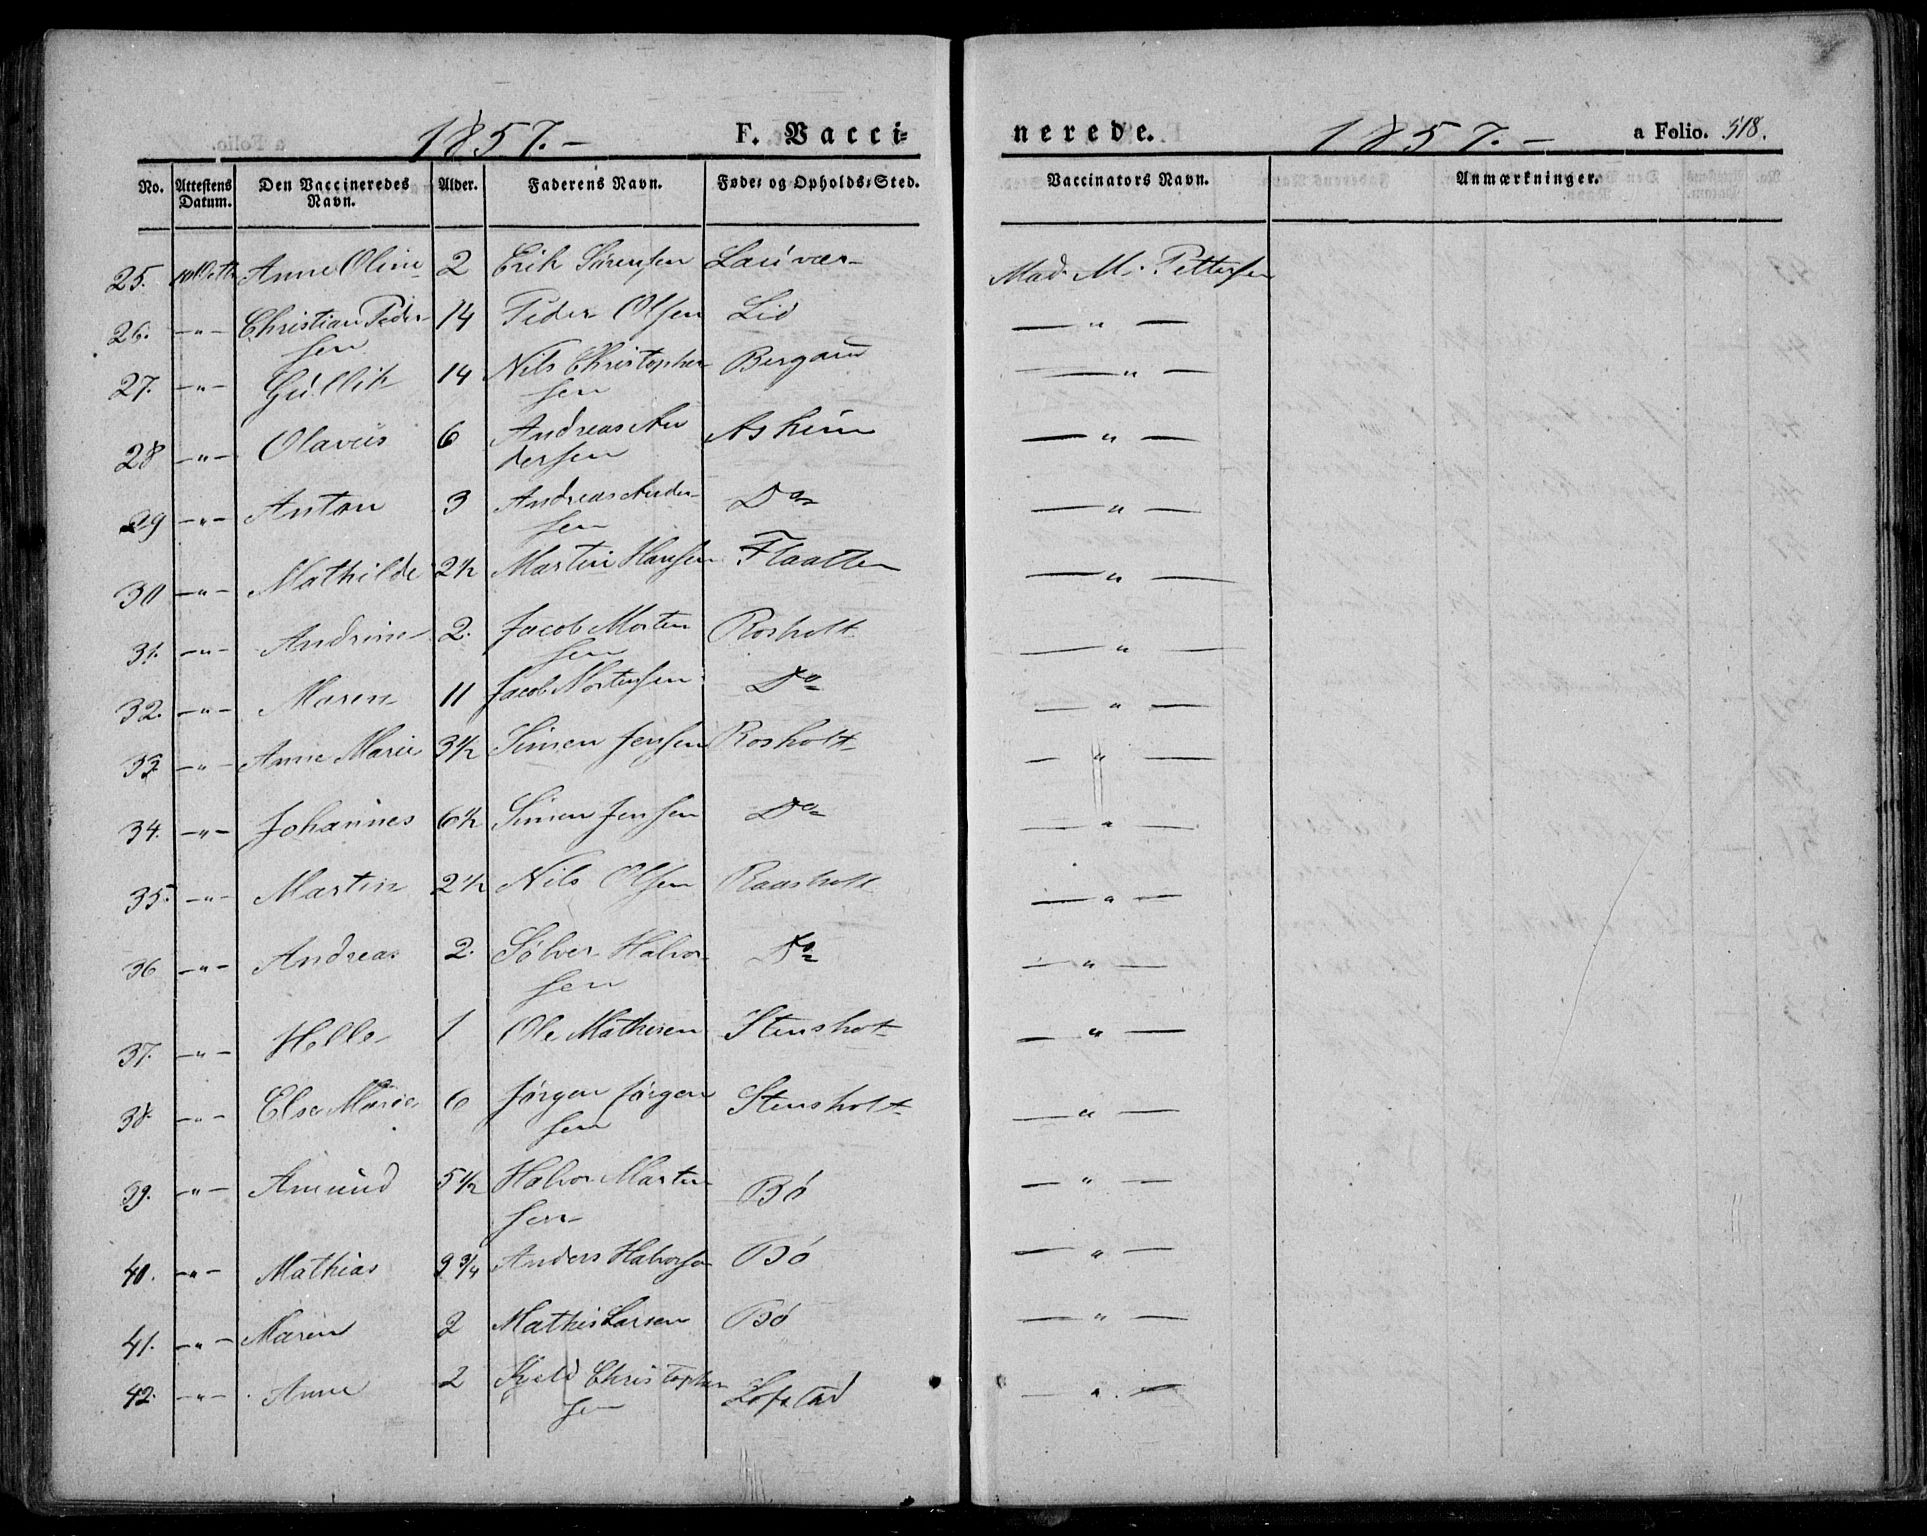 1857.- F. Vacci-
nerede. 1857.- a Folio. 518.
No. Attestens Datum. Den Vaccineredes Navn. Alder. Faderens Navn. Føde- og Opholds-Sted. Vaccinators Navn. Anmærkninger.
25. Anne Oline 2 Erik Sørensen Lauvær Mad. M. Pettersen
26. -"- Christian Peder- 14 Peder Olsen Lid — " —
sen
27. -"- Gullik 14 Nils Christopher Bergan — " —
sen
28 -"- Olavus 6 Andreas An Ashiim — " —
dersen
29 -"- Anton 3 Andreas Ander- Do — " —
sen
30 -"- Mathilde 2½ Martin Hansen Flaatten — " —
31. -"- Andrine 2. Jacob Morten Rosholt — " —
sen
32. -"- Maren 11 Jacob Mortensen Do — " —
33 -"- Anne Marie 3½ Simen Jensen Rosholt — " —
34. -"- Johannes 6½ Simen Jensen Do — " —
35. -"- Martin 2½ Nils Olsen Raasholt — " —
36 -"- Andreas 2. Sølver Halvor Do — " —
sen
37. -"- Helle 1 Ole Mathisen Stensholt — " —
38. -"- Else Marie 6 Jørgen Jørgen Stensholt — " —
sen
39. -"- Amund 5½ Halvor Marten Bó — " —
sen
40. -"- Mathias 9¾ Anders Halvorsen Bó — " —
41. -"- Maren 2 Mathis Larsen Bó — " —
42. -"- Anne 2 Kjeld Christopher Lofstad — " —
sen